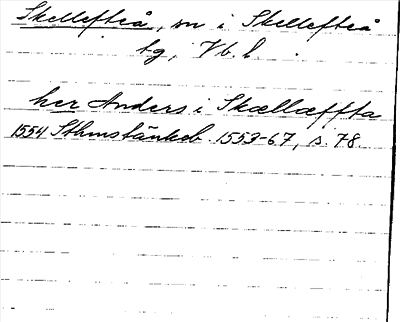 Skellefteå, sn i Skellefteå
tg, Vb. l.
her Anders i Skællæffta
1554 Sthmstänkeb. 1553-67, s. 78.